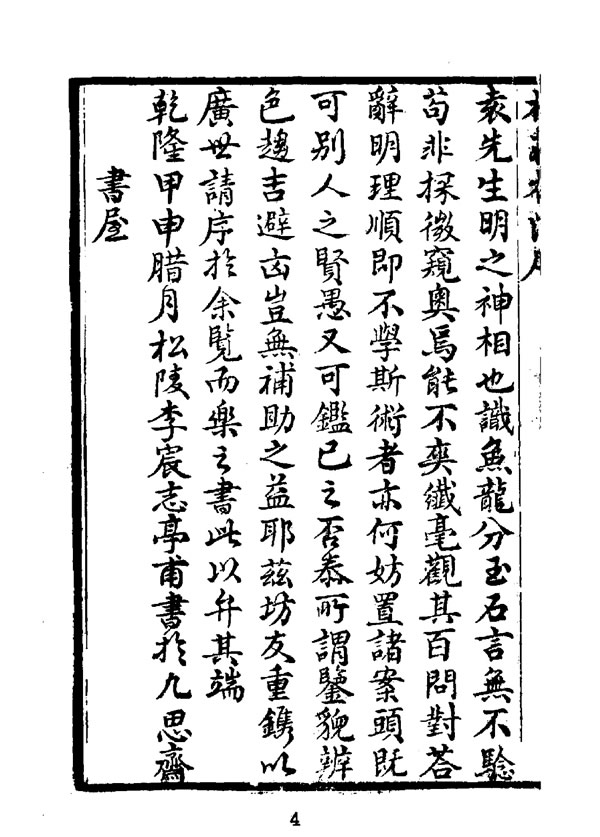 袁先生明之神相也識魚龍分玉石言無不驗
苟非探微窺奧焉能不爽纖毫觀其百問對答
辭明理順即不學斯術者亦何妨置諸案頭既
可別人之賢愚又可鑑已之否泰所謂鑒貌辨
色趨吉避凶豈無補助之益耶茲坊友重鐫以
廣世請序於余覽而樂之書此以弁其端
乾隆甲申腊月松陵李宸志亭甫書於九思齋
書屋
4